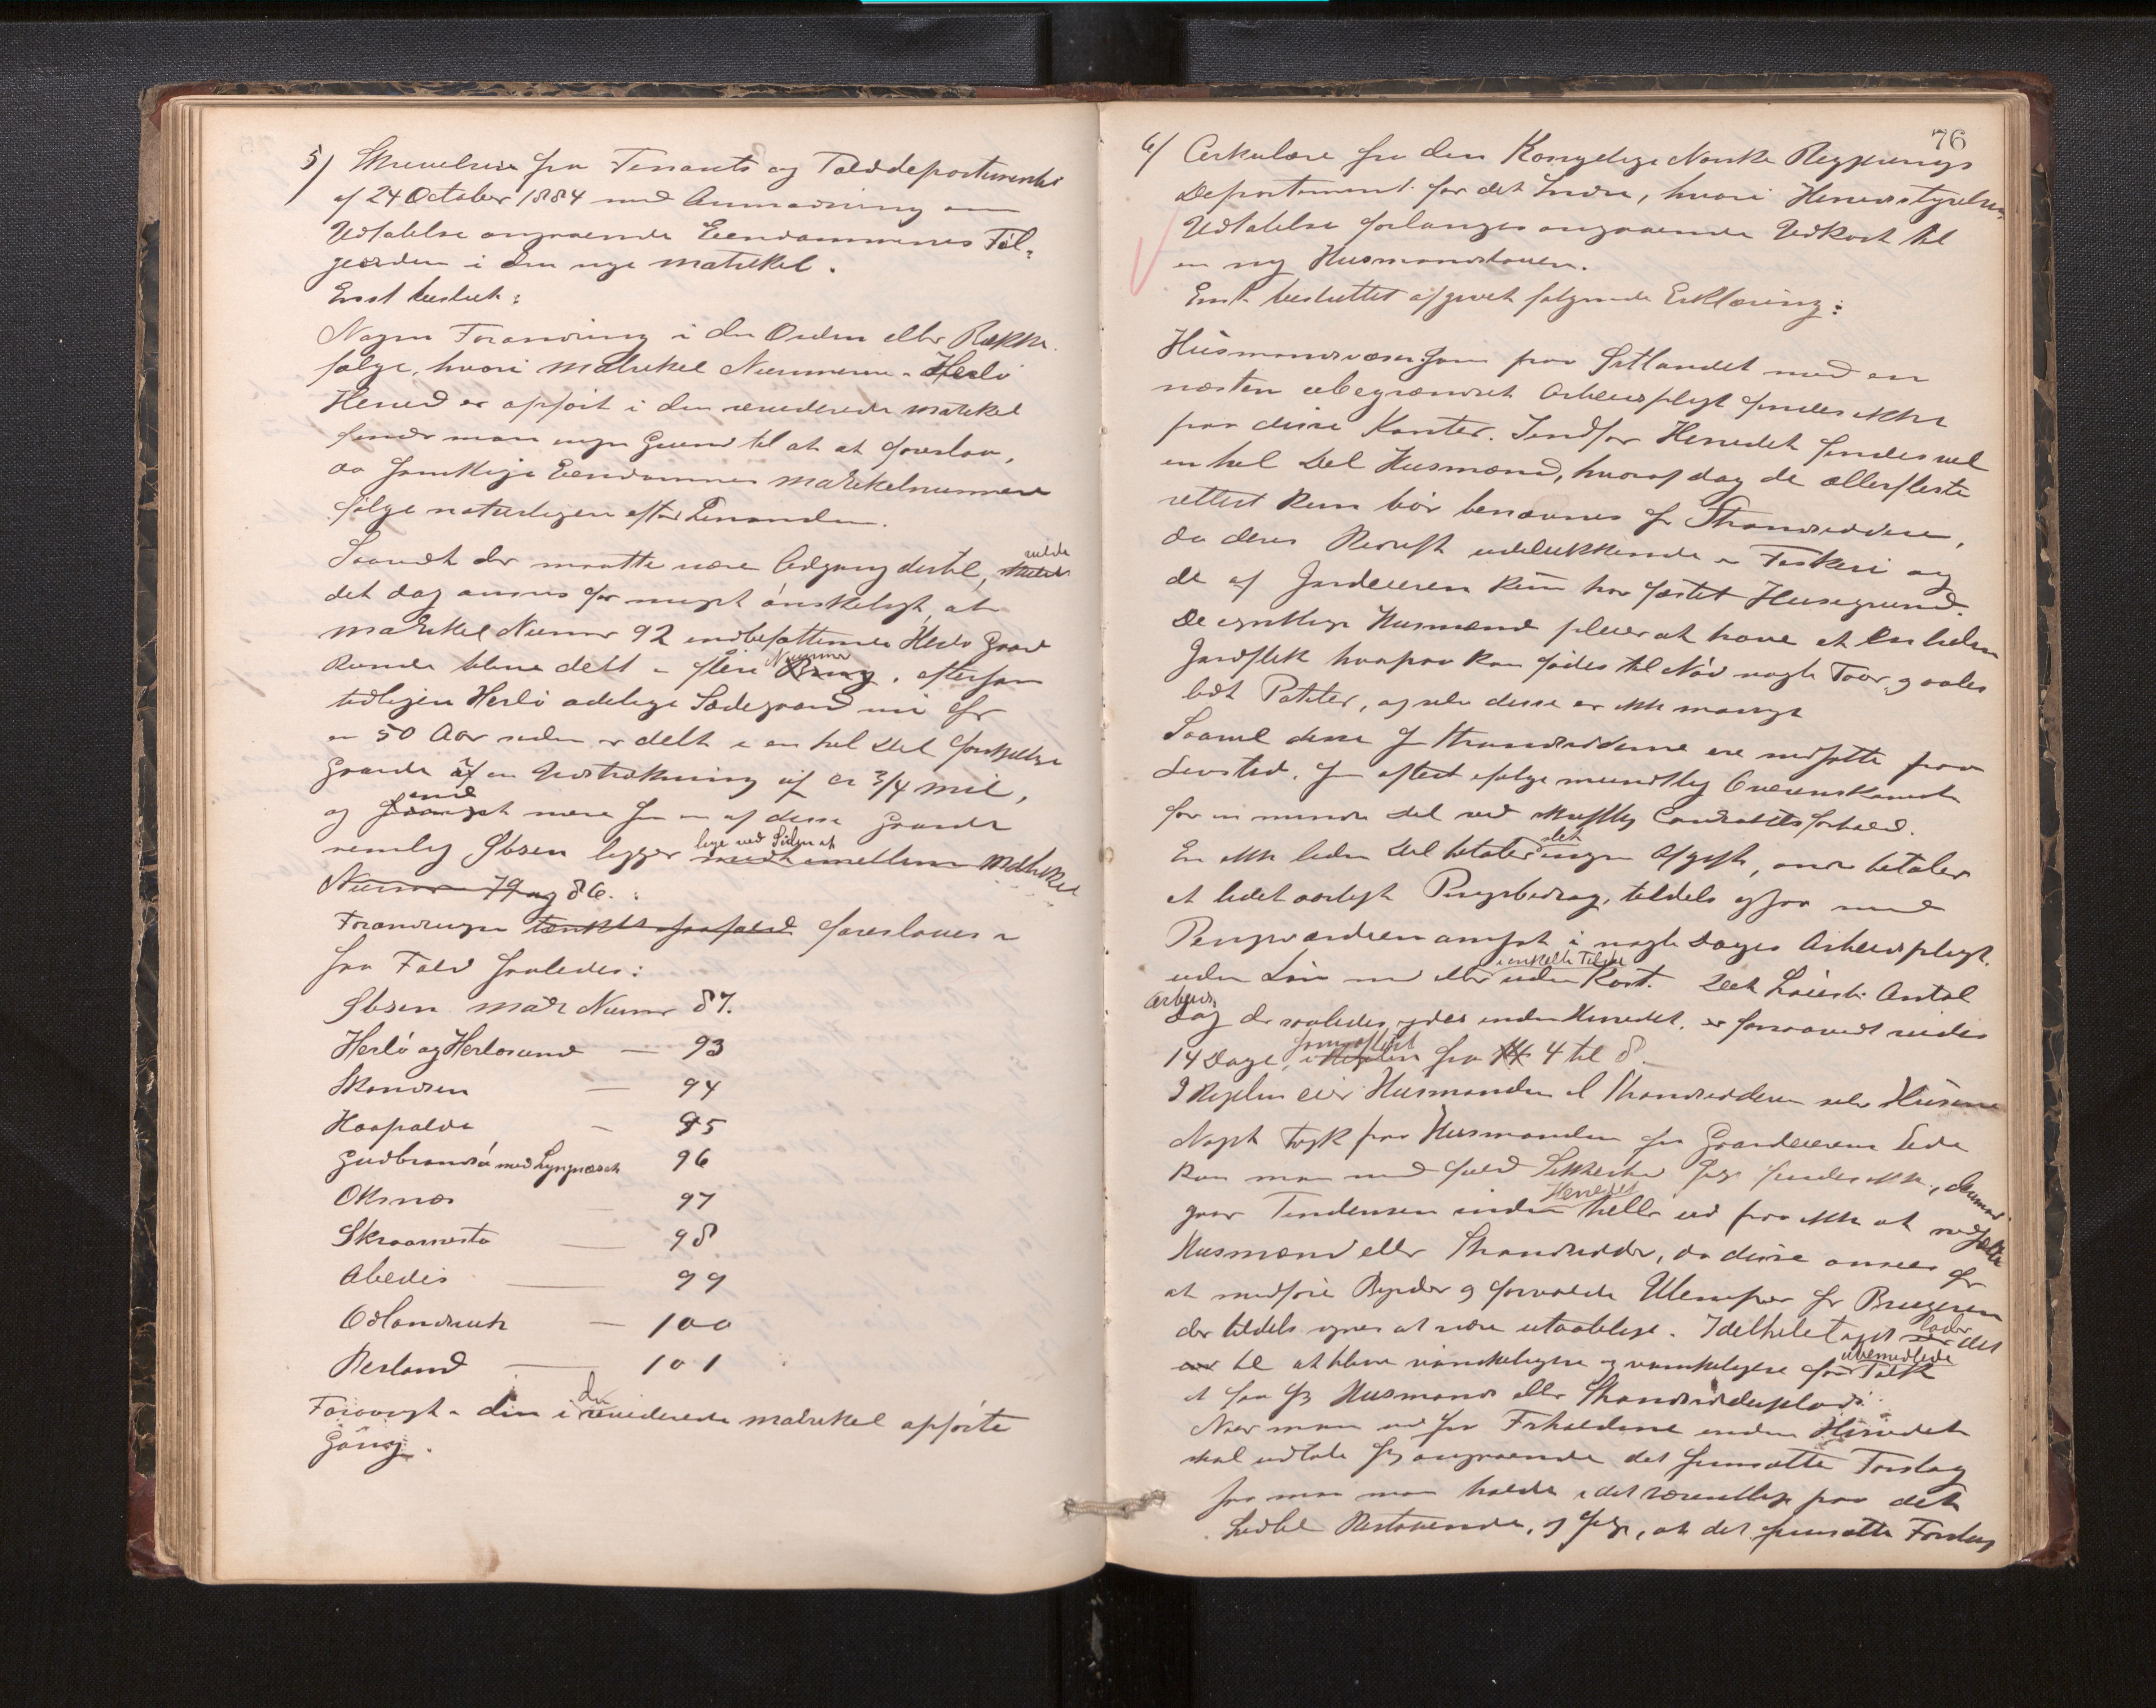 5) Skrivelse fra Finants og Tolddepartementet
af 24 October 1884 med Anmodning om
Udtalelse angaaende Eiendommenes Føl-
georden i den nye Matrikel.
Enst besluttet:
Nogen Forandring i den Orden eller Række-
følge, hvori Matrikel Numerne i Herlø
Herred er opført i den reviderede Matrikel
finder man ingen Grund til at foreslaa,
da samtlige Eiendommes Matrikelnummere
følge naturligen efter hinanden.
Saavidt der maatte være Adgang dertil, vilde
det dog ansees for meget ønskeligt, at
Matrikel Numer 92 indbefattende Herlø Gaard
kunde blive delt i flere Numer, eftersom
tidligere Herlø adelige Sædegaard nu for
ca 50 Aar siden er delt i en hel Del forskjellige
Gaarde af en Udstrækning af ca 3/4 Mil,
og
nemlig Ibsen ligger lige ved Siden af midt imellem Matrikel
Numer 79 og 86.:
Forandringen tænkt i saafald foreslaaes i
saa Fald saaledes:
Ibsen Matr Numer 87.
Herlø og Herløsund — 93
Skandsen — 94
Haapalde — 95
Gudbrandsø med Lyngnæset 96
Oksnæs — 97
Skraamestø — 98
Abedis — 99
Odlandsvik — 100
Berland — 101
Forøvrigt i den i den reviderede Matrikel opførte
Gang.
76
6/ Cirkulære fra den Kongelige Norske Regjerings
Departement for det Indre, hvori Herredsstyrelsens
Udtalelse forlanges angaaende Udkast til
en ny Husmandslov.
Enst. besluttet afgivet følgende Erklæring:
Husmandsvæsen som paa Østlandet med en
næsten ubegrændset Arbeidspligt findes ikke
paa disse Kanter. Indfor Herredet findes vel
en hel Del Husmænd, hvoraf dog de allerfleste
rettest kun bør benævnes for Strandsiddere,
da deres Bedrift udelukkende er Fiskeri og
de af Jordeieren kun har fæstet Husegrund.
De egentlige Husmænd pleier at have et lidet
Jordstykke hvorpaa kan fødes til Nød nogle Faar, og avles
lidt Poteter, og selv disse er ikke mange
Saavel disse som Strandsidderne ere nedsatte paa
Livstid, som oftest ifølge mundtlig Overenskomst
for en mindre Del ved skriftlig Contractsforhold.
En ikke liden Del betaler slet ingen Afgift, andre betaler
et lidet aarligt Pengebeløb, tildels ogsaa med
Pengeværdien ansat i nogle Dages Arbeidspligt
uden Løn med eller i enkelte Tilfælde uden Kost. Det høieste Antal
Arbeids-
Dag der saaledes ydes inden Herredet, er forsaavidt vides
14 Dage, som oftest i Regelen fra 4 til 8.
I Regelen eier Husmanden el Strandsidderen selv Husene
Noget Tryk paa Husmanden fra Gaardeierens Side
kan man med fuld Sikkerhed sige findes ikke, derimod
gaar Tendensen inden Herredet heller ud paa ikke at nedsætte
Husmænd eller Strandsiddere, da disse ansees for
at medføre Byrder og forvolde Ulemper for Brugeren
der tildels synes at være utaalelige. I det hele taget lader det
til at blive vanskeligere og vanskeligere for ubemidlede Folk
at faa sig Husmands eller Strandsidderplads.
Naar man nu fra Forholdene inden Herredet
skal udtale sig angaaende det fremsatte Forslag
saa maa man holde i det væsentlige paa det
hidtil Bestaaende, og sige, at det fremsatte Forslag